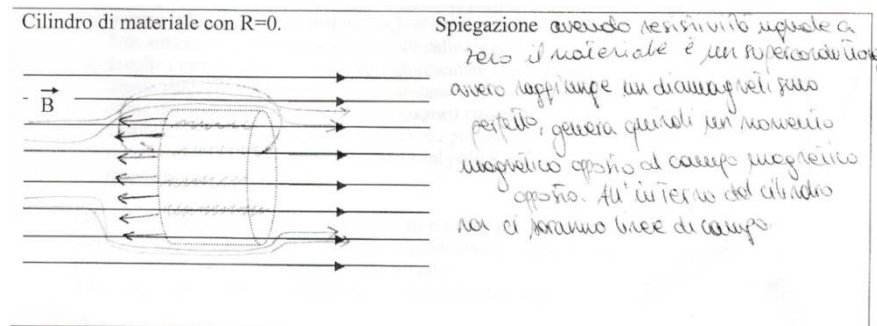 Cilindro di materiale con R=0.
Spiegazione avendo resistività uguale a
zero il materiale è un superconduttore
ovvero raggiunge un diamagnetismo
perfetto, genera quindi un momento
magnetico opposto al campo magnetico
opposto. All'interno del cilindro
non ci saranno linee di campo.
B